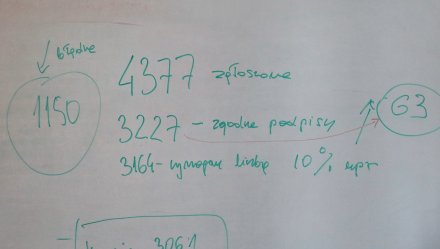 błędne
4377 zgłoszone
1150
3227 - zgodne podpisy
63
3164 - wymagana liczba 10% upr
3061